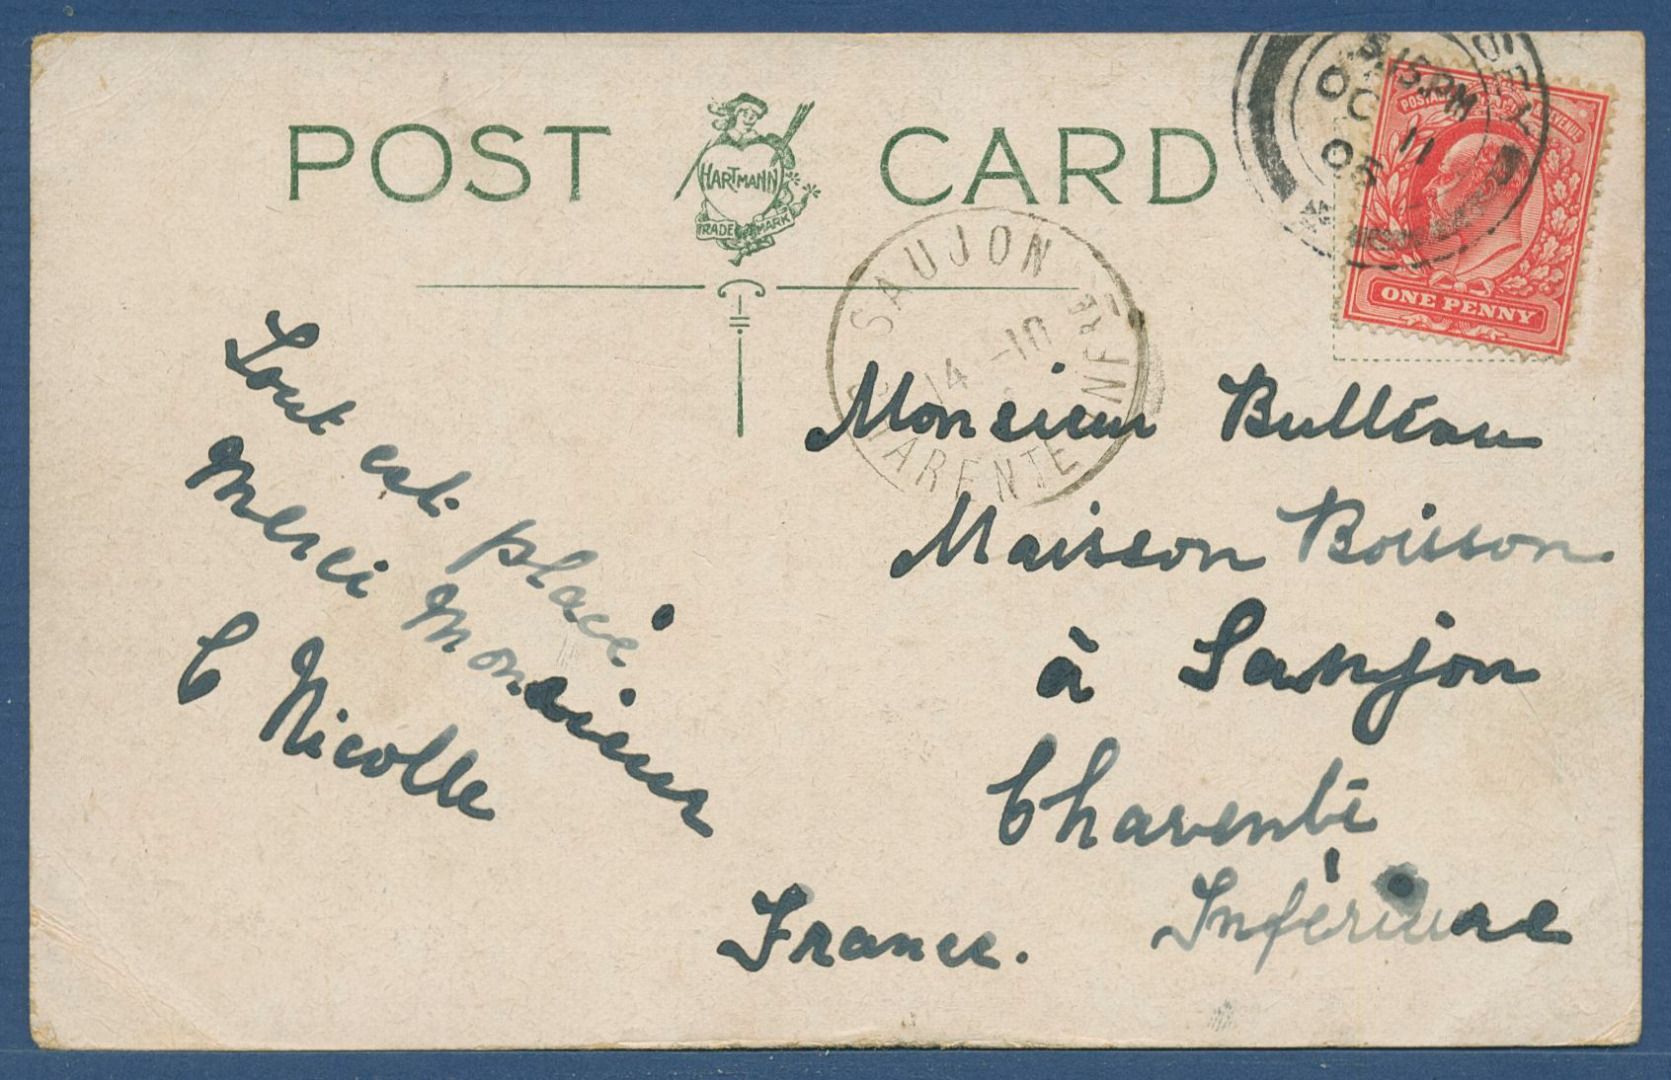 POST CARD
HARTMANN
TRADE MARK
5.15PM
OC 11
05
POSTAGE REVENUE
ONE PENNY
SAUJON
14 -10
CHARENTE INFRE
Tout est placé
Merci Monsieur
C Nicolle
Monsieur Bulléau
Maison Boisson
à Saujon
Charente
Inférieure
France.